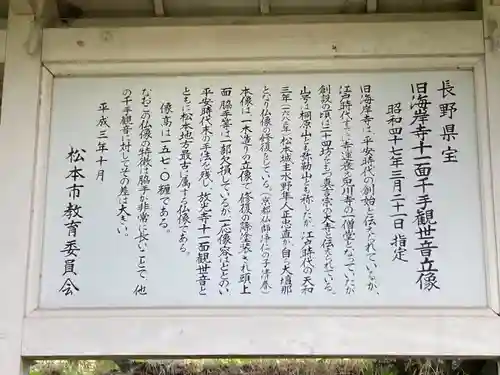 長野県宝
旧海岸寺十一面千手観世音立像
昭和四十七年三月二十一日 指定
旧海岸寺は平安時代の創始と伝えられているが、
江戸時代までに寺運衰え兎川寺の一僧堂となっていたが
創設の頃は二十四坊をもつ真言宗の大寺と伝えられている。
山号は桐原山とも弥勒山とも称したが江戸時代の天和
三年(一六八三年)松本城主水野隼人正忠直が自ら大壇那
となり仏像の修復をしている。(京都仏師浄仁の子清春)
本像は一木造りの立像で修復の際塗装され頭上
面、脇手等は一部欠損しているが一応像容はととのい
平安時代末の手法を残し、放光寺十一面観世音と
ともに松本地方最古に属する仏像である。
像高は一五七・〇糎である。
なおこの仏像の特徴は脇手が非常に長いことで 他
の千手観音に対してその差は大きい。
平成三年十月
松本市教育委員会